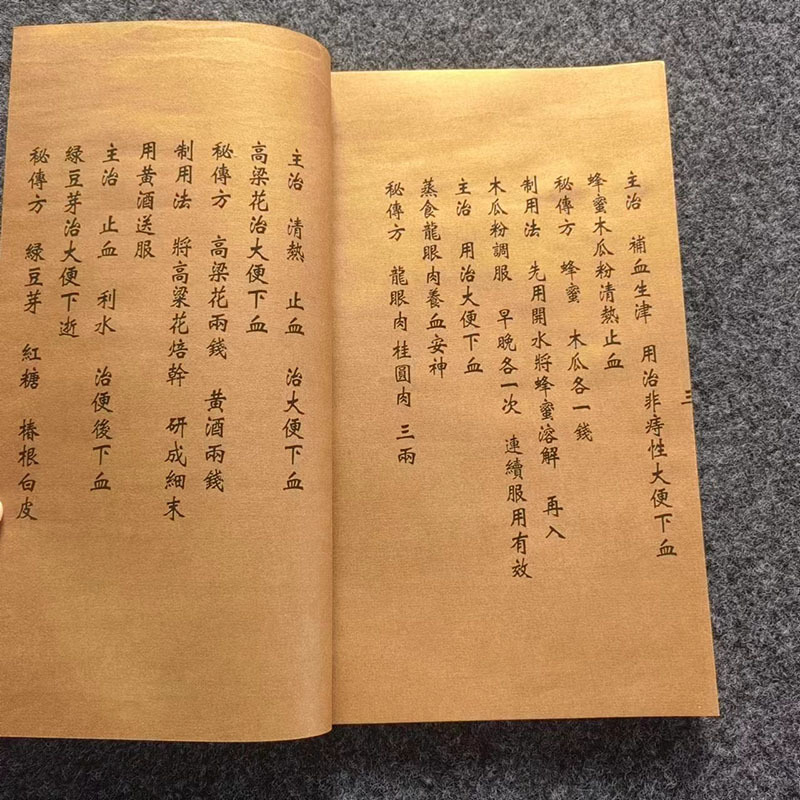 主治 補血生津 用治非痔性大便下血
蜂蜜木瓜粉清熱止血
秘傳方 蜂蜜 木瓜各一錢
制用法 先用開水將蜂蜜溶解 再入
木瓜粉調服 早晚各一次 連續服用有效
主治 用治大便下血
蒸食龍眼肉養血安神
秘傳方 龍眼肉桂圓肉 三兩
三
主治 清熱 止血 治大便下血
高梁花治大便下血
秘傳方 高梁花兩錢 黄酒兩錢
制用法 將高粱花焙幹 研成細末
用黄酒送服
主治 止血 利水 治便後下血
緑豆芽治大便下逝
秘傳方 緑豆芽 紅糖 椿根白皮